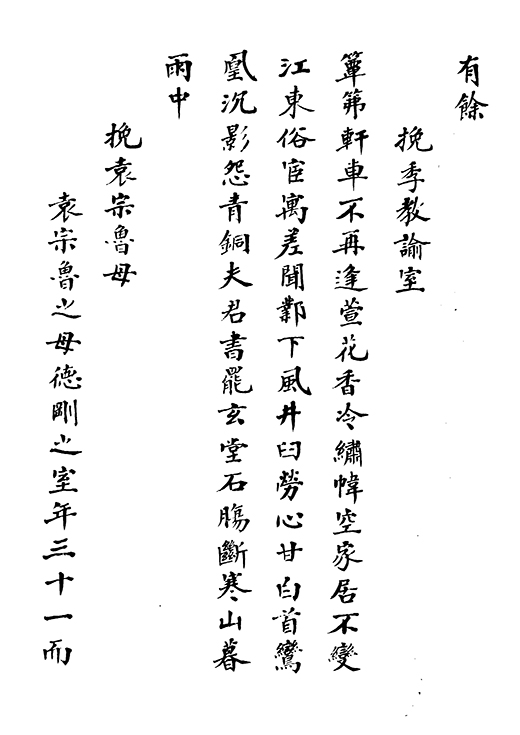 有餘
挽季教諭室
簟茀軒車不再逢萱花香冷繡幃空家居不變
江東俗宦寓差聞鄴下風井臼勞心甘白首鸞
凰沉影怨青銅夫君書罷玄堂石腸斷寒山暮
雨中
挽袁宗魯母
袁宗魯之母德剛之室年三十一而